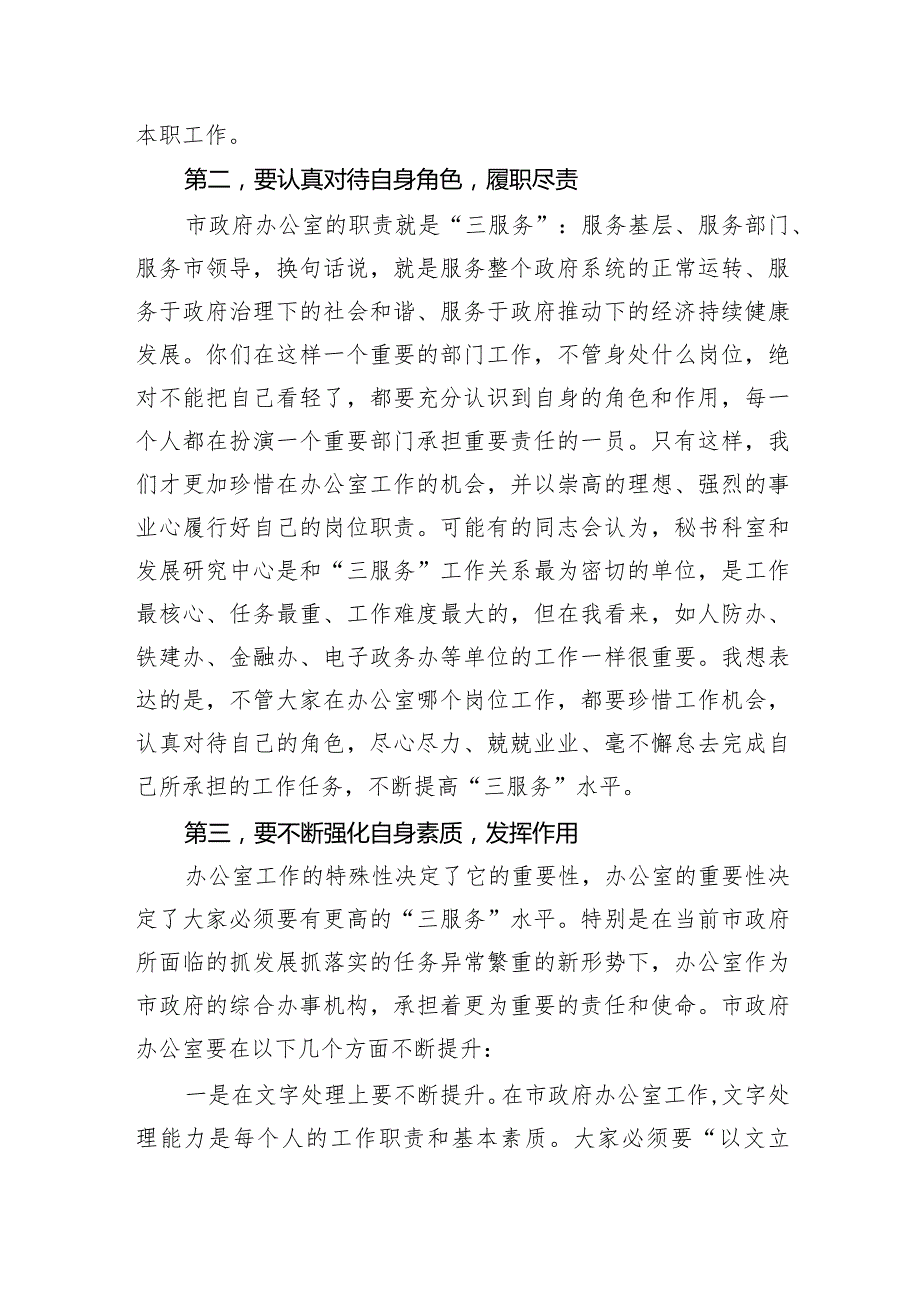 本职工作。
第二，要认真对待自身角色，履职尽责
市政府办公室的职责就是“三服务”：服务基层、服务部门、
服务市领导，换句话说，就是服务整个政府系统的正常运转、服
务于政府治理下的社会和谐、服务于政府推动下的经济持续健康
发展。你们在这样一个重要的部门工作，不管身处什么岗位，绝
对不能把自己看轻了，都要充分认识到自身的角色和作用，每一
个人都在扮演一个重要部门承担重要责任的一员。只有这样，我
们才更加珍惜在办公室工作的机会，并以崇高的理想、强烈的事
业心履行好自己的岗位职责。可能有的同志会认为，秘书科室和
发展研究中心是和“三服务”工作关系最为密切的单位，是工作
最核心、任务最重、工作难度最大的，但在我看来，如人防办、
铁建办、金融办、电子政务办等单位的工作一样很重要。我想表
达的是，不管大家在办公室哪个岗位工作，都要珍惜工作机会，
认真对待自己的角色，尽心尽力、兢兢业业、毫不懈怠去完成自
己所承担的工作任务，不断提高“三服务”水平。
第三，要不断强化自身素质，发挥作用
办公室工作的特殊性决定了它的重要性，办公室的重要性决
定了大家必须要有更高的“三服务”水平。特别是在当前市政府
所面临的抓发展抓落实的任务异常繁重的新形势下，办公室作为
市政府的综合办事机构，承担着更为重要的责任和使命。市政府
办公室要在以下几个方面不断提升：
一是在文字处理上要不断提升。在市政府办公室工作,文字处
理能力是每个人的工作职责和基本素质。大家必须要“以文立